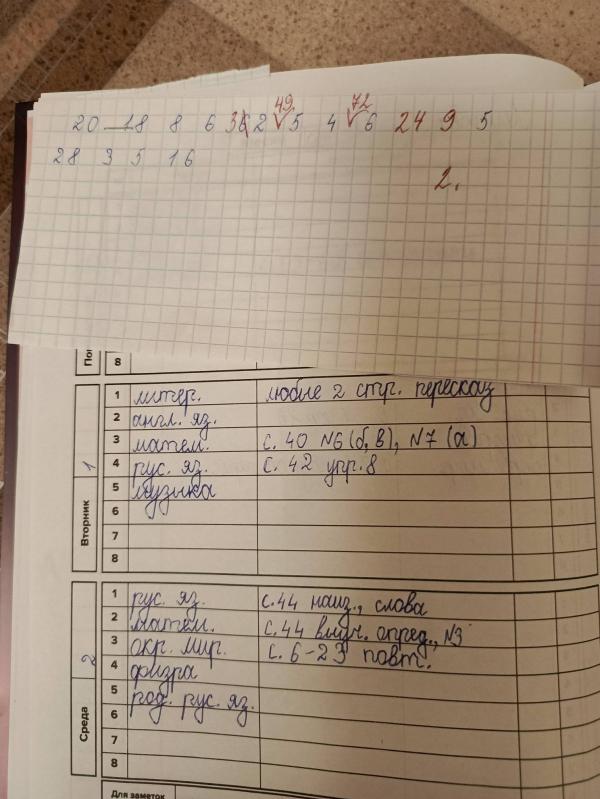 49 72
20 18 8 6 36 2 5 4 6 24 9 5
28 3 5 16
2.
8
Вторник 1
1 литер. любые 2 стр. пересказ
2 англ. яз.
3 матем. с. 40 №6 (б, в), №7 (а)
4 рус. яз. с. 42 упр. 8
5 музыка
6
7
8
Среда 2
1 рус. яз. с. 44 наиз., слова
2 матем. с. 44 выуч. опред., №3
3 окр. мир. с. 6-23 повт.
4 физра
5 род. рус. яз.
6
7
8
Для заметок